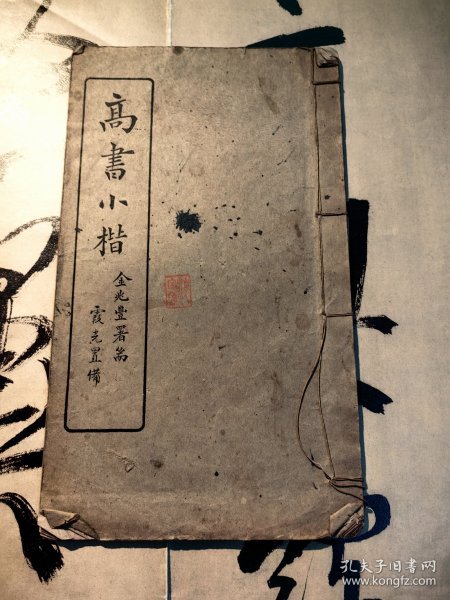 髙書小楷
金兆豐署耑
霞光置備
孔夫子旧书网
www.kongfz.com